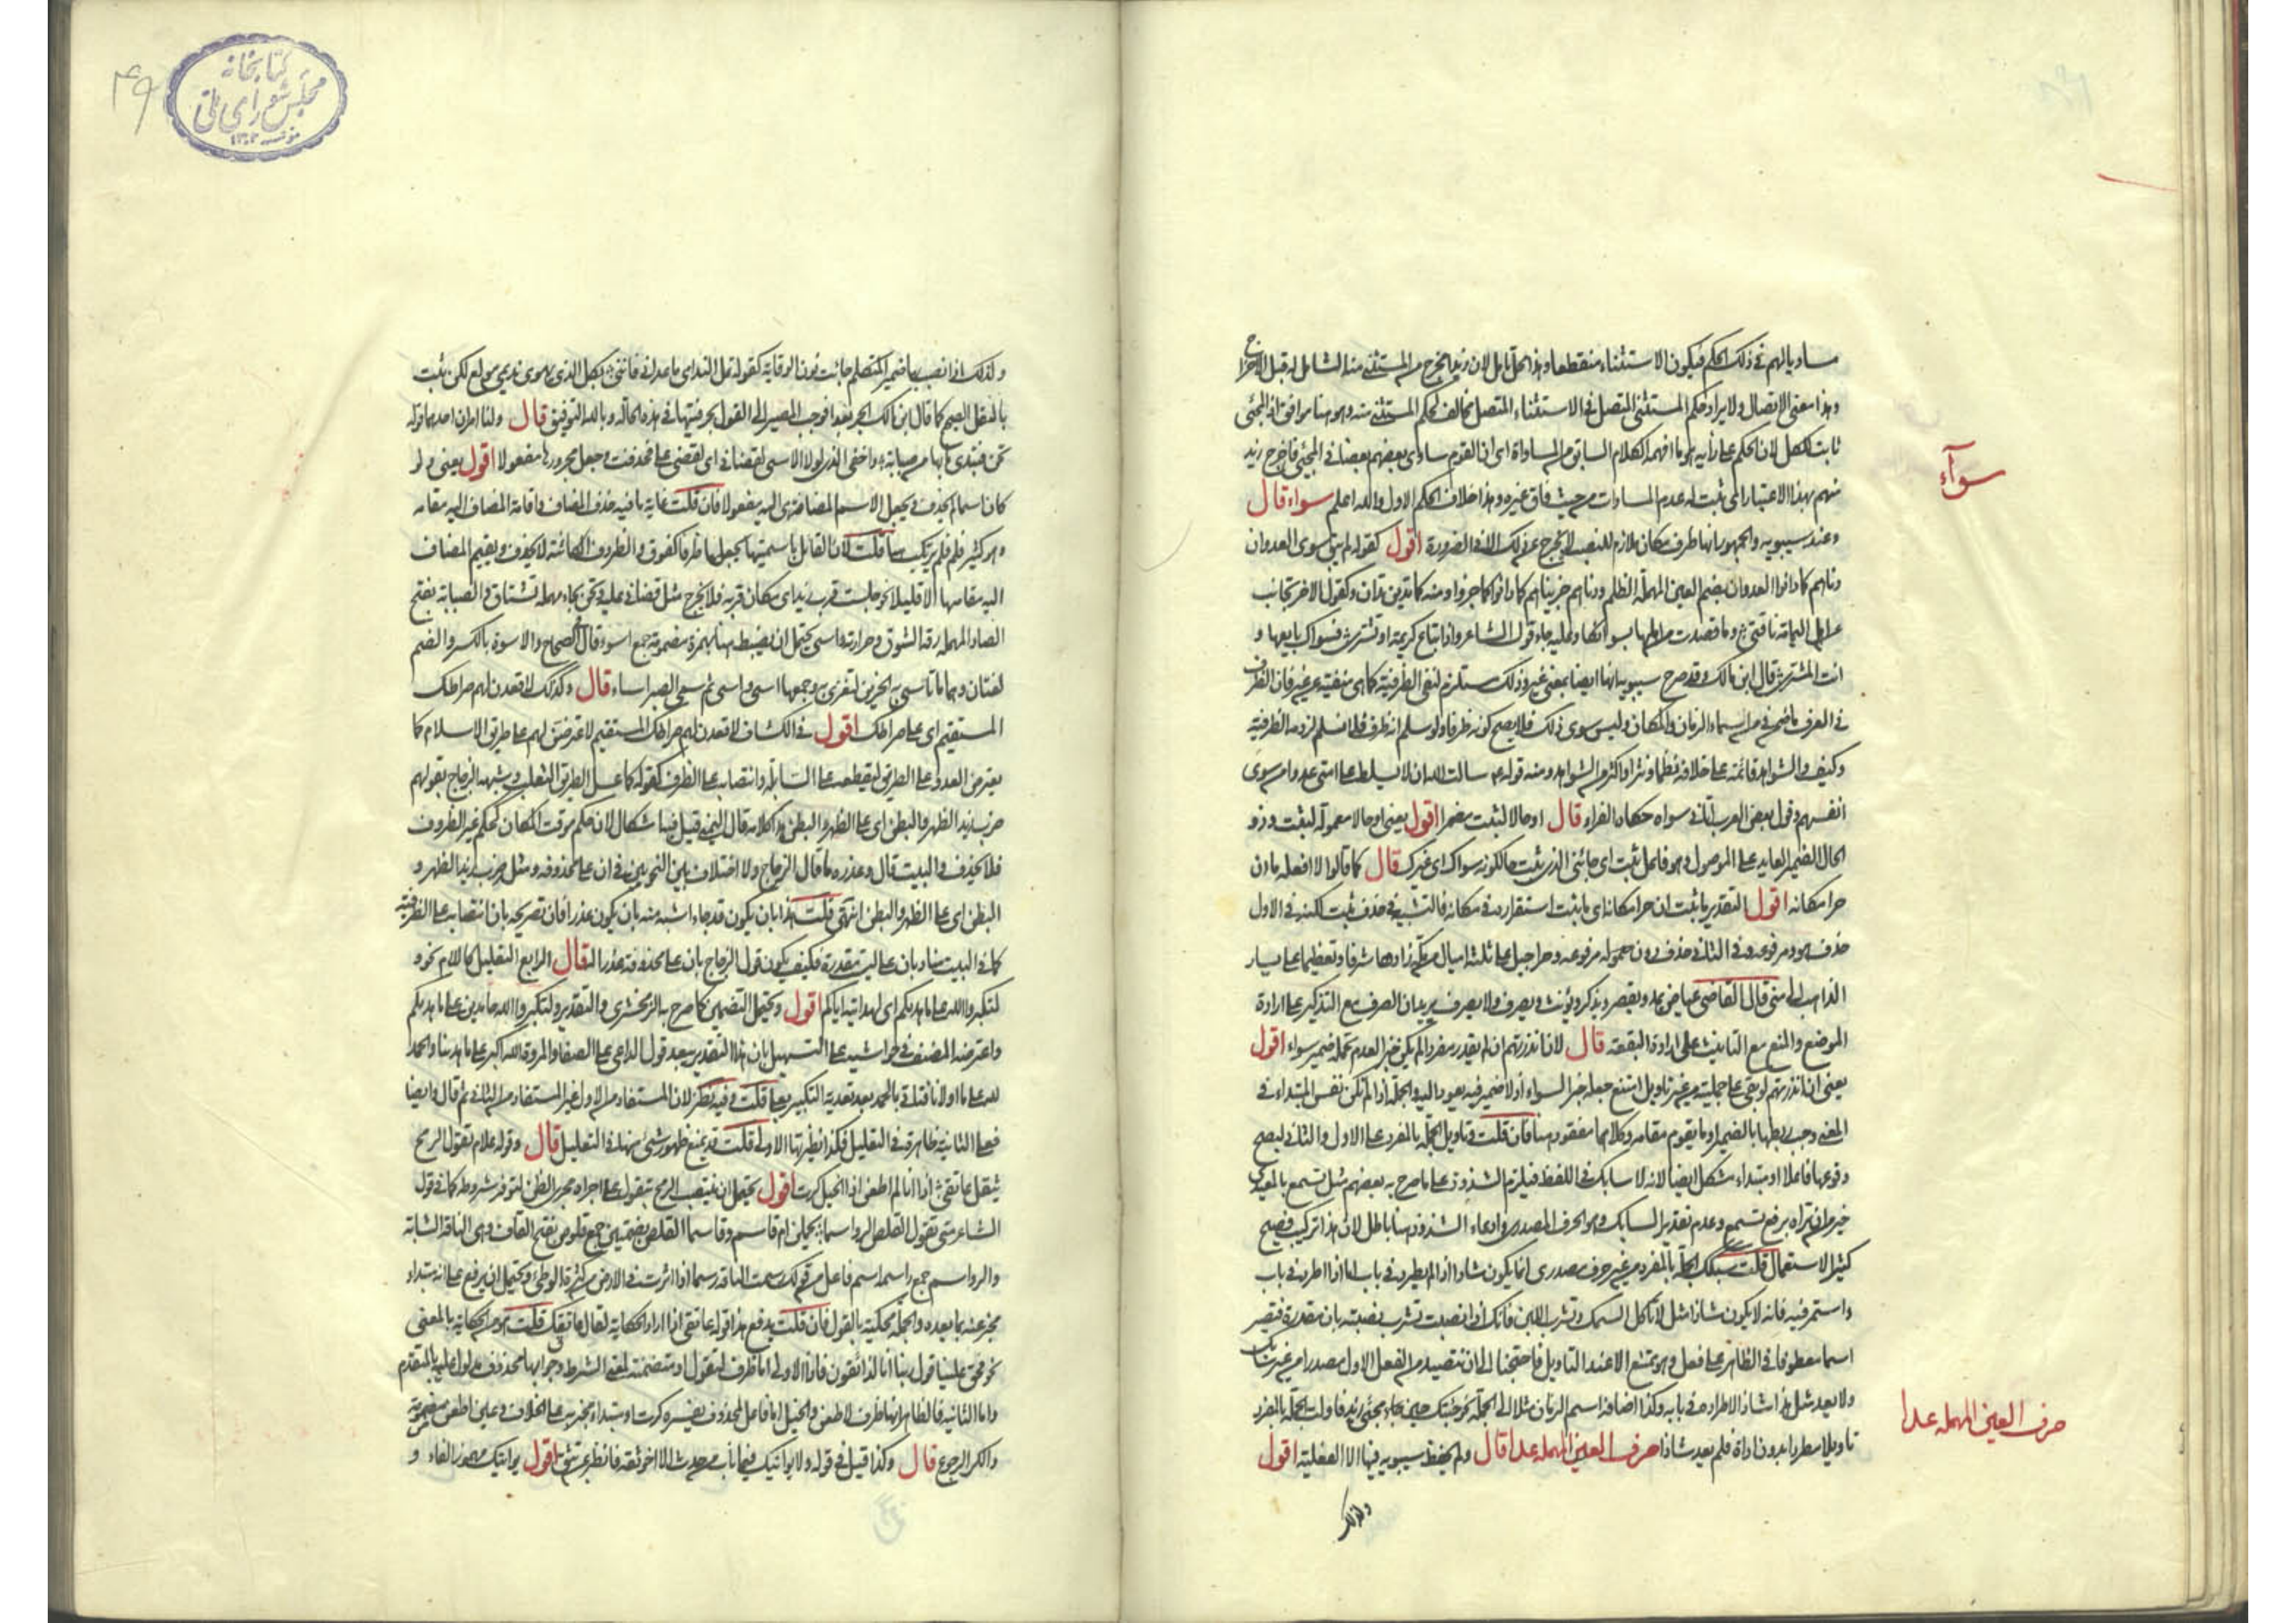 مساويا لهم في ذلك الحكم فيكون الاستثناء منقطعا وهذا محل تامل لان زيد المخرج من المستثنى منه الشامل له قبل الاخراج
وهذا معنى الاتصال ولا يراد حكم المستثنى المتصل في الاستثناء المتصل مخالف لحكم المستثنى منه وهو هنا موافق اذ المجئ
ثابت للكل لان الحكم على رأيه هو ما افهمه الكلام السابق من المساواة اى ان القوم ساوى بعضهم بعضا في المجئ فاخرج زيد
منهم بهذا الاعتبار اى ثبت له عدم المساوات من حيث فاق غيره وهذا خلاف الحكم الاول والله اعلم سواء قال
وعند سيبويه والجمهور انها ظرف مكان ملازم للنصب لا يخرج عن ذلك الا في الضرورة اقول كقوله لم يبق سوى العدوان
دناهم كما دانوا العدوان بضم العين المهملة الظلم ودناهم جزيناهم كما دانوا كما جزوا ومنه كما تدين تدان وكقول الاخر تجانف
عن اهل اليمامة ناقتي وما قصدت من اهلها لسوائكا وعليه جاء قول الشاعر واذا تباع كريمة او تشترى فسواك بايعها و
انت المشترى قال ابن مالك وقد صرح سيبويه بانها ايضا بمعنى غير وذلك مستلزم لنفى الظرفية كما هى منفية عن غير فان الظرف
في العرف ما ضمن في من اسماء الزمان والمكان وليس سوى ذلك فلا يصح كونه ظرفا ولو سلم انه ظرف فلا نسلم لزومه الظرفية
وكيف والشواهد قائمة على خلافه نظما ونثرا واكثر من الشواهد ومنه قوله عم سالت الله ان لا يسلط على امتى عدوا من سوى
انفسهم وقول بعض العرب اتاني سواه حكاه الفراء قال او حالا لثبت مضمرا اقول يعنى او حالا معمولة لثبت وذو
الحال الضمير العايد على الموصول وهو فاعل ثبت اى جائنى الذي ثبت حالكونه سواك اى غيرك قال كما قالوا لا افعله ما ان
حرا مكانه اقول التقدير ما ثبت ان حرا مكانه اى ما ثبت استقراره في مكانه فالتشبيه في حذف ثبت لكنه في الاول
حذف هو ومرفوعه وفي الثاني حذف دون معموله مرفوعه وحرا جبل على ثلثة اميال من مكة زادها شرفا وتعظيما على يسار
الذاهب الى منى قال القاضى عياض يمد ويقصر ويذكر ويؤنث ويصرف ولا يصرف يريد ان الصرف مع التذكير على ارادة
الموضع والمنع مع التانيث على ارادة البقعة قال لان انذرتهم ان لم يقدر مفردا لم يكن خبرا لعدم تحمله ضمير سواء اقول
يعنى ان انذرتهم لو بقى على جمليته من غير تاويل امتنع جعله خبر السواء اذ لا ضمير فيه يعود اليه والجملة اذا لم تكن نفس المبتداء في
المعنى وجب ربطها بالضمير او ما يقوم مقامه وكلاهما مفقود هنا فان قلت وتاويل الجملة بالمفرد على الاول والثاني ليصح
وقوعها فاعلا او مبتداء مشكل ايضا لانه لا سابك في اللفظ فيلزم الشذوذ على ما صرح به بعضهم مثل تسمع بالمعيدى
خير من ان تراه برفع تسمع وعدم تقدير السابك وهو الحرف المصدرى وادعاء الشذوذ هنا باطل لان هذا تركيب فصيح
كثير الاستعمال قلت سبك الجملة بالمفرد من غير حرف مصدرى انما يكون شاذا اذا لم يطرد في باب اما اذا اطرد في باب
واستمر فيه فانه لا يكون شاذا مثل لا تأكل السمك وتشرب اللبن فانك اذا نصبت وتشرب نصبته بان مقدرة فتصير
اسما معطوفا في الظاهر على فعل وهو ممتنع الا عند التاويل فاحتجنا الى ان نتصيد من الفعل الاول مصدرا من غير سابك
ولا يعد مثل هذا شاذا لاطراده في بابه وكذا اضافة اسم الزمان مثلا الى الجملة نحو جئتك حين جاء زيد اى مجئ زيد فاولت الجملة بالمفرد
تاويلا مطردا بدون اداة فلم يعد شاذا حرف العين المهملة عدا قال ولم يحفظ سيبويه فيها الا الفعلية اقول
ولذلك
سوآء
حرف العين المهملة عدا
ولذلك اذا نصب بها ضمير المتكلم جائت بنون الوقاية كقوله تمل الندامى ما عدانى فاننى بكل الذى يهوى نديمى مولع لكن ثبت
بالنقل الصحيح كما قال ابن مالك الجر بعدا فوجب المصير الى القول بحرفيتها في هذه الحالة وبالله التوفيق قال ولنا امران احدهما قوله
تحن فتبدى ما بها من صبابة واخفى الذى لولا الاسى لقضانى اى لقضى على فحذفت وجعل مجرورها مفعولا اقول يعنى ولو
كان اسما لم يحذف ويجعل الاسم المضاف هى اليه مفعولا فان قلت غاية ما فيه حذف المضاف واقامة المضاف اليه مقامه
وهو كثير فلم لم يرتكب هنا قلت لان القائل باسميتها يجعلها ظرفا كفوق والظروف المكانية لا يحذف ويقيم المضاف
اليه مقامها الا قليلا نحو جلست قرب زيد اى مكان قربه فلا يخرج مثل قضانى عليه وتحن بحاء مهملة تشتاق والصبابة بفتح
الصاد المهملة رقة الشوق وحرارته واسى يحتمل ان يضبط هنا بهمزة مضمومة جمع اسوة قال في الصحاح والاسوة بالكسر والضم
لغتان وهما ما تأتسى به الحزين لتعزى وجمعها اسى واسى ثم سمى الصبر اساء قال وكذلك لاقعدن لهم صراطك
المستقيم اى على صراطك اقول في الكشاف لاقعدن لهم صراطك المستقيم لاعترضن لهم على طريق الاسلام كما
يعترض العدو على الطريق ليقطعه على السابلة وانتصابه على الظرف كقوله كما عسل الطريق الثعلب وشبهه الزجاج بقولهم
ضرب زيد الظهر والبطن اى على الظهر والبطن هذا كلامه قال اليمنى قيل فيه اشكال لان حكم موقت المكان كحكم غير الظروف
فلا يحذف والبيت قال وعذره ما قال الزجاج ولا اختلاف بين النحويين في ان على محذوفه ومثل ضرب زيد الظهر و
البطن اى على الظهر والبطن انتهى قلت هذا بان يكون قدحا اشبه منه بان يكون عذرا فان تصريحه بان انتصابه على الظرفية
كما في البيت مناد بان على ليست مقدرة فكيف يكون قول الزجاج بان على محذوفة عذرا له قال الرابع التعليل كاللام نحو و
لتكبروا الله على ما هديكم اى لهدايته اياكم اقول ويحتمل التضمين كما صرح به الزمخشرى والتقدير ولتكبروا الله حامدين على ما هديكم
واعترضه المصنف في حواشيه على التسهيل بان هذا التقدير يبعد قول الداعى على الصفا والمروة الله اكبر على ما هدينا والحمد
لله على ما اولانا فتاتى بالحمد بعد تعدية التكبير بعلى قلت وفيه نظر لان المستفاد من الاول غير المستفاد من الثاني ثم قال وايضا
فعلى الثانية ظاهرة في التعليل فكذا نظيرتها الاولى قلت قد يمنع ظهور شئ منهما في التعليل قال وقوله علام تقول الرمح
يثقل عاتقى اذا انا لم اطعن اذا الخيل كرت اقول يحتمل ان ينتصب الرمح بتقول على اجراه مجرى الظن لتوفر شروطه كما في قول
الشاعر متى تقول القلص الرواسما يحملن ام قاسم وقاسما القلص بضمتين جمع قلوص بفتح القاف وهى الناقة الشابة
والرواسم جمع راسمة اسم فاعل من قولك رسمت الناقة رسما اذا اثرت في الارض من كثرة الوطئ ويحتمل ان يرفع على انه مبتداء
مخبر عنه بما بعده والجملة محكية بالقول فان قلت يدفع هذا قوله عاتقى اذا اراد الحكاية لقال عاتقك قلت هو من الحكاية بالمعنى
نحو فحق علينا قول ربنا انا لذائقون فاذا الاولى اما ظرف لتقول او متضمنة لمعنى الشرط وجوابها محذوف مدلول عليه بالمتقدم
واما الثانية فالظاهر انها ظرف لاطعن والخيل اما فاعل لمحذوف يفسره كرت او مبتداء مخبر به على الخلاف وعين اطعن مضمومة
والكر الرجوع قال وكذا قيل في قوله ولا يواتيك فيما ناب من حدث الا اخو ثقة فانظر بمن تثق اقول يواتيك مهموز الفاء و
كتابخانه
مجلس شوراى ملى